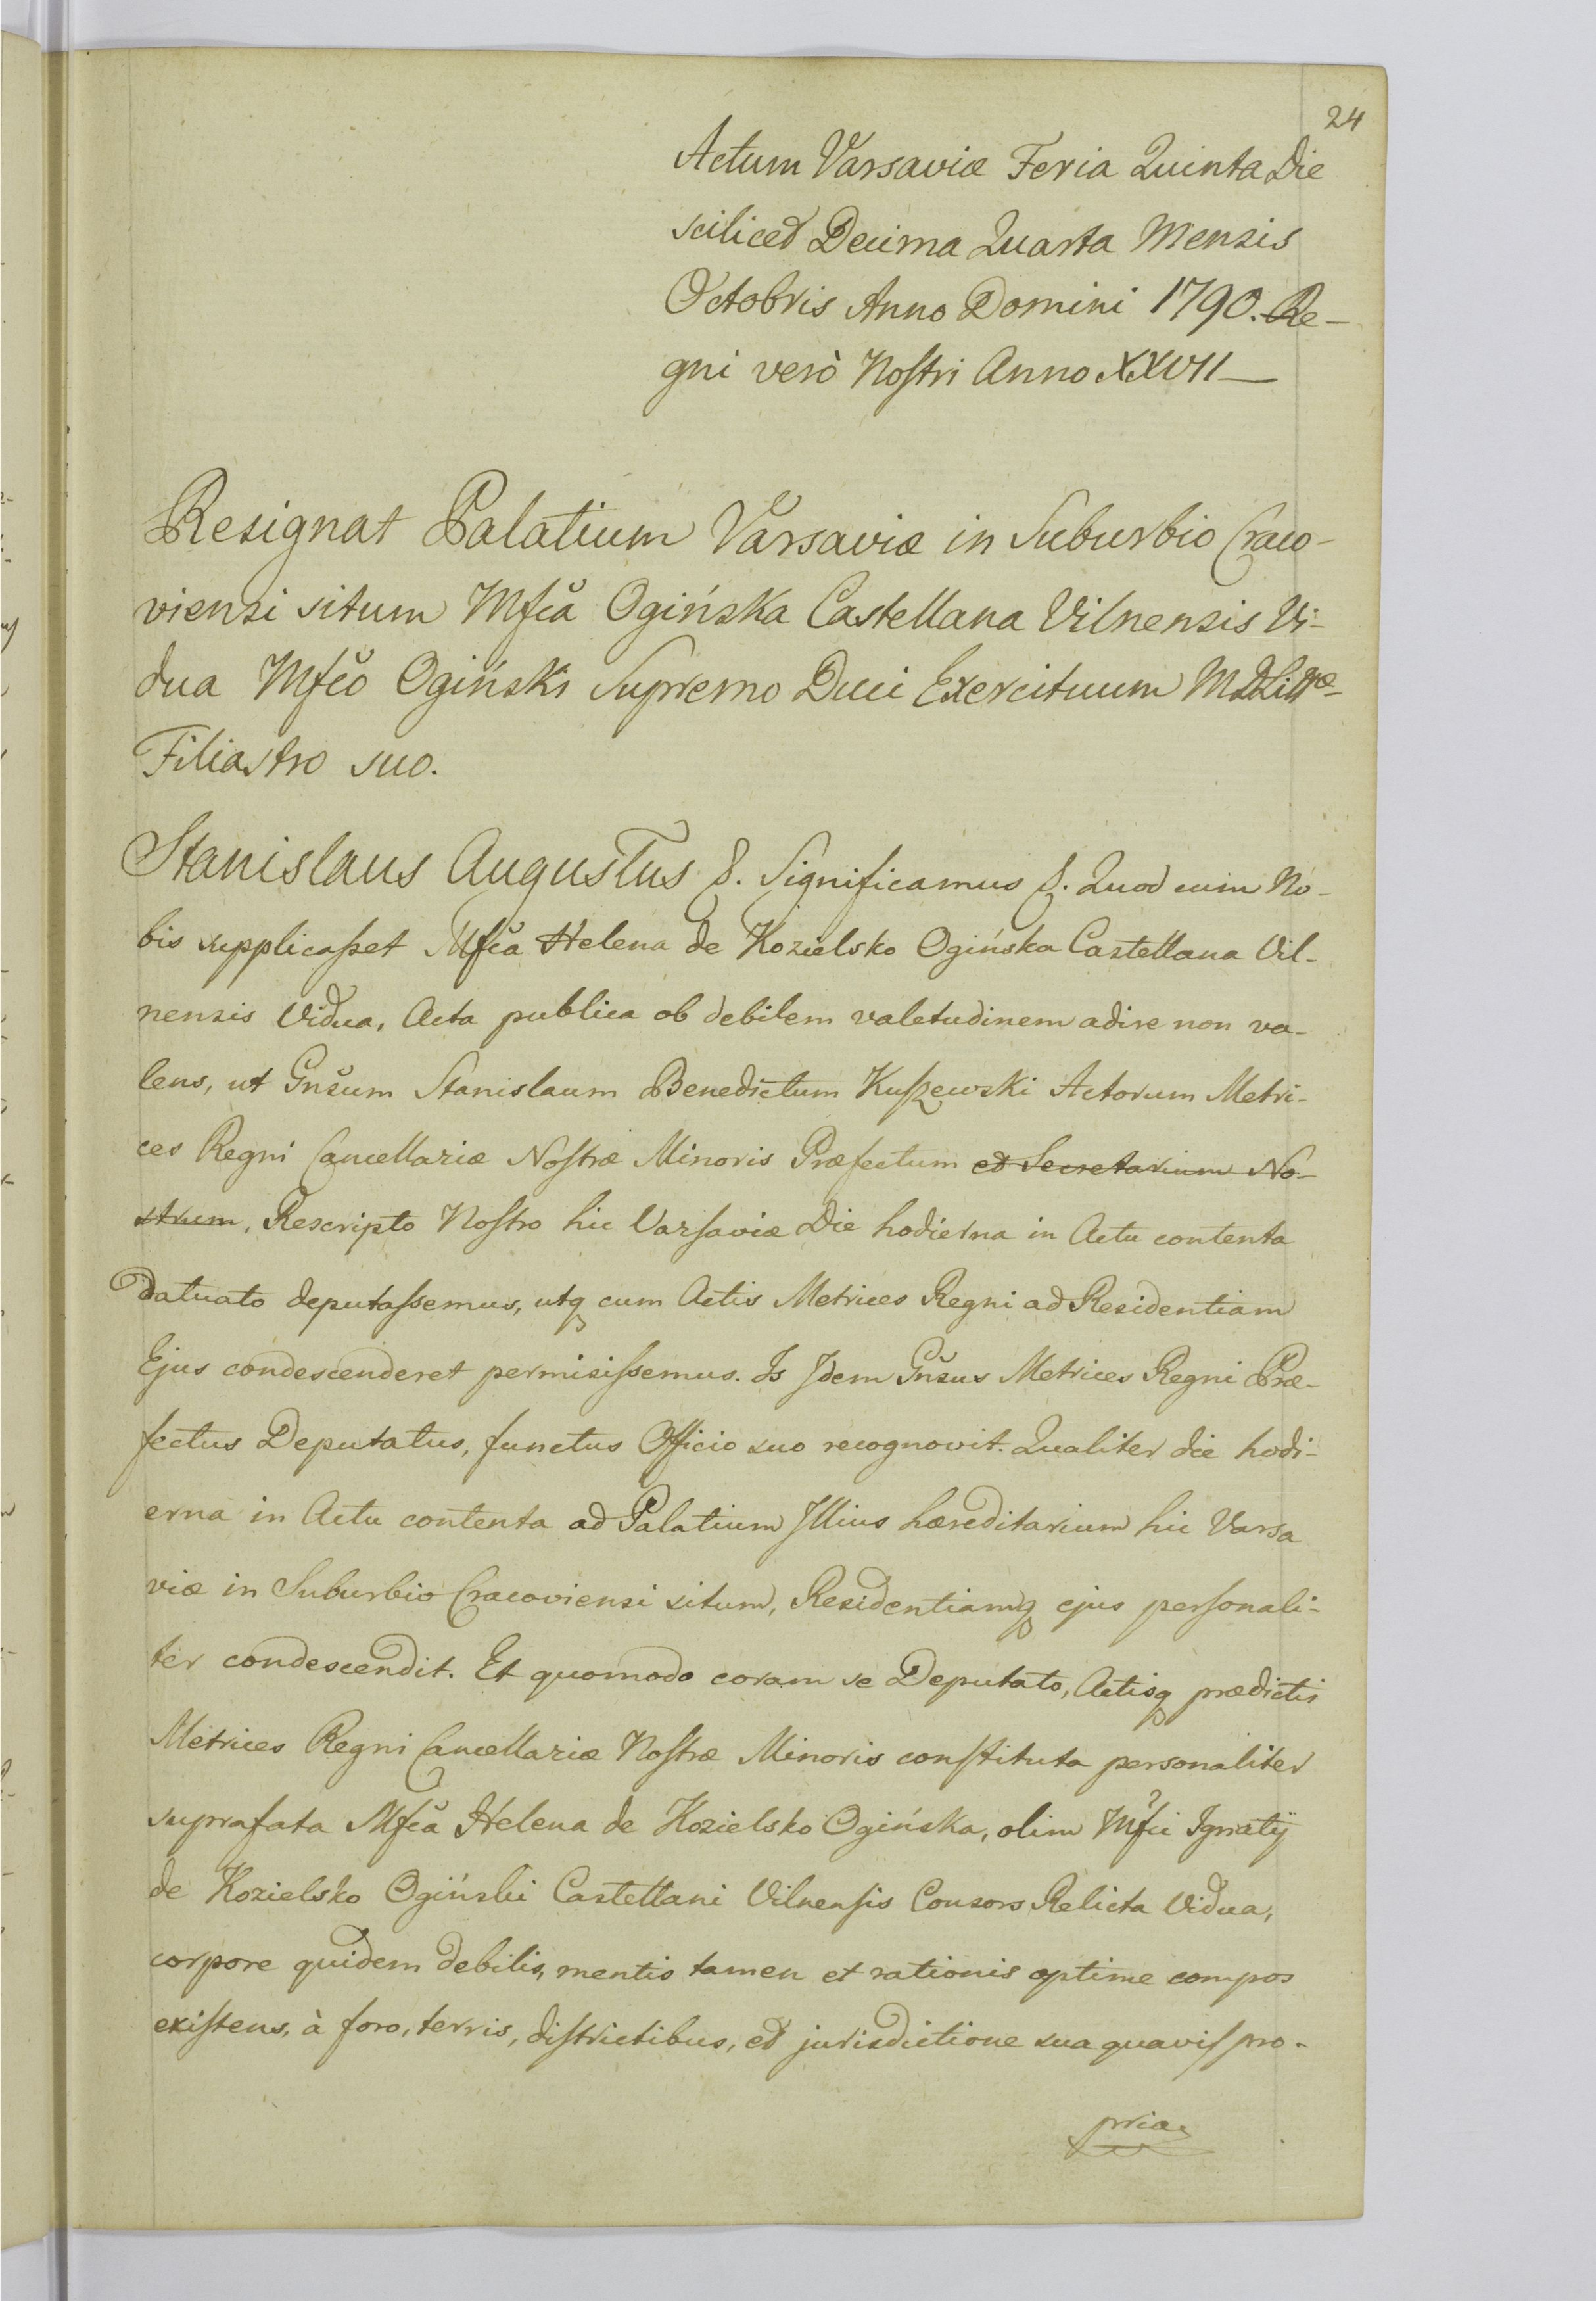 24
Actum Varsaviæ Feria Quinta Die
scilicet Decima Quarta Mensis
Octobris Anno Domini 1790. Re-
gni verò Noſtri Anno XXVII —
Resignat Palatium Varsaviæ in Suburbio Craco-
viensi situm Mfča Ogińska Castellana Vilnensis Vi-
dua Mfčo Ogiński Supremo Duci Exercituum MDLittæ
Filiastro suo.
Stanislaus Augustus &. Significamus &. Quod cum No-
bis supplicaſset Mfča Helena de Kozielsko Ogińska Castellana Vil-
nensis Vidua, Acta publica ob debilem valetudinem adire non va-
lens, ut Gnšum Stanislaum Benedictum Kuſzewski Actorum Metri-
ces Regni Cancellariæ Noſtræ Minoris Præfectum et Secretarium No-
strum, Rescripto Noſtro hic Varſaviæ Die hodierna in Actu contenta
Datuato deputaſsemus, utq cum Actis Metrices Regni ad Residentiam
Ejus condescenderet permisiſsemus. Is Idem Gnšus Metrices Regni Præ-
fectus Deputatus, functus Officio suo recognovit. Qualiter die hodi-
erna in Actu contenta ad Palatium Illius hæreditarium hic Varsa
viæ in Suburbio Cracoviensi situm, Residentiamq ejus perſonali-
ter condescendit. Et quomodo coram se Deputato, Actisq prædictis
Metrices Regni Cancellariæ Noſtræ Minoris conſtituta personaliter
suprafata Mfča Helena de Kozielsko Ogińska, olim Mfci Ignatij
de Kozielsko Ogiński Castellani Vilnenſis Consors Relicta Vidua,
corpore quidem debilis, mentis tamen et rationis optime compos
exiſtens, à foro, terris, diſtrictibus, et jurisdictione sua quaviſ pro-
pria,